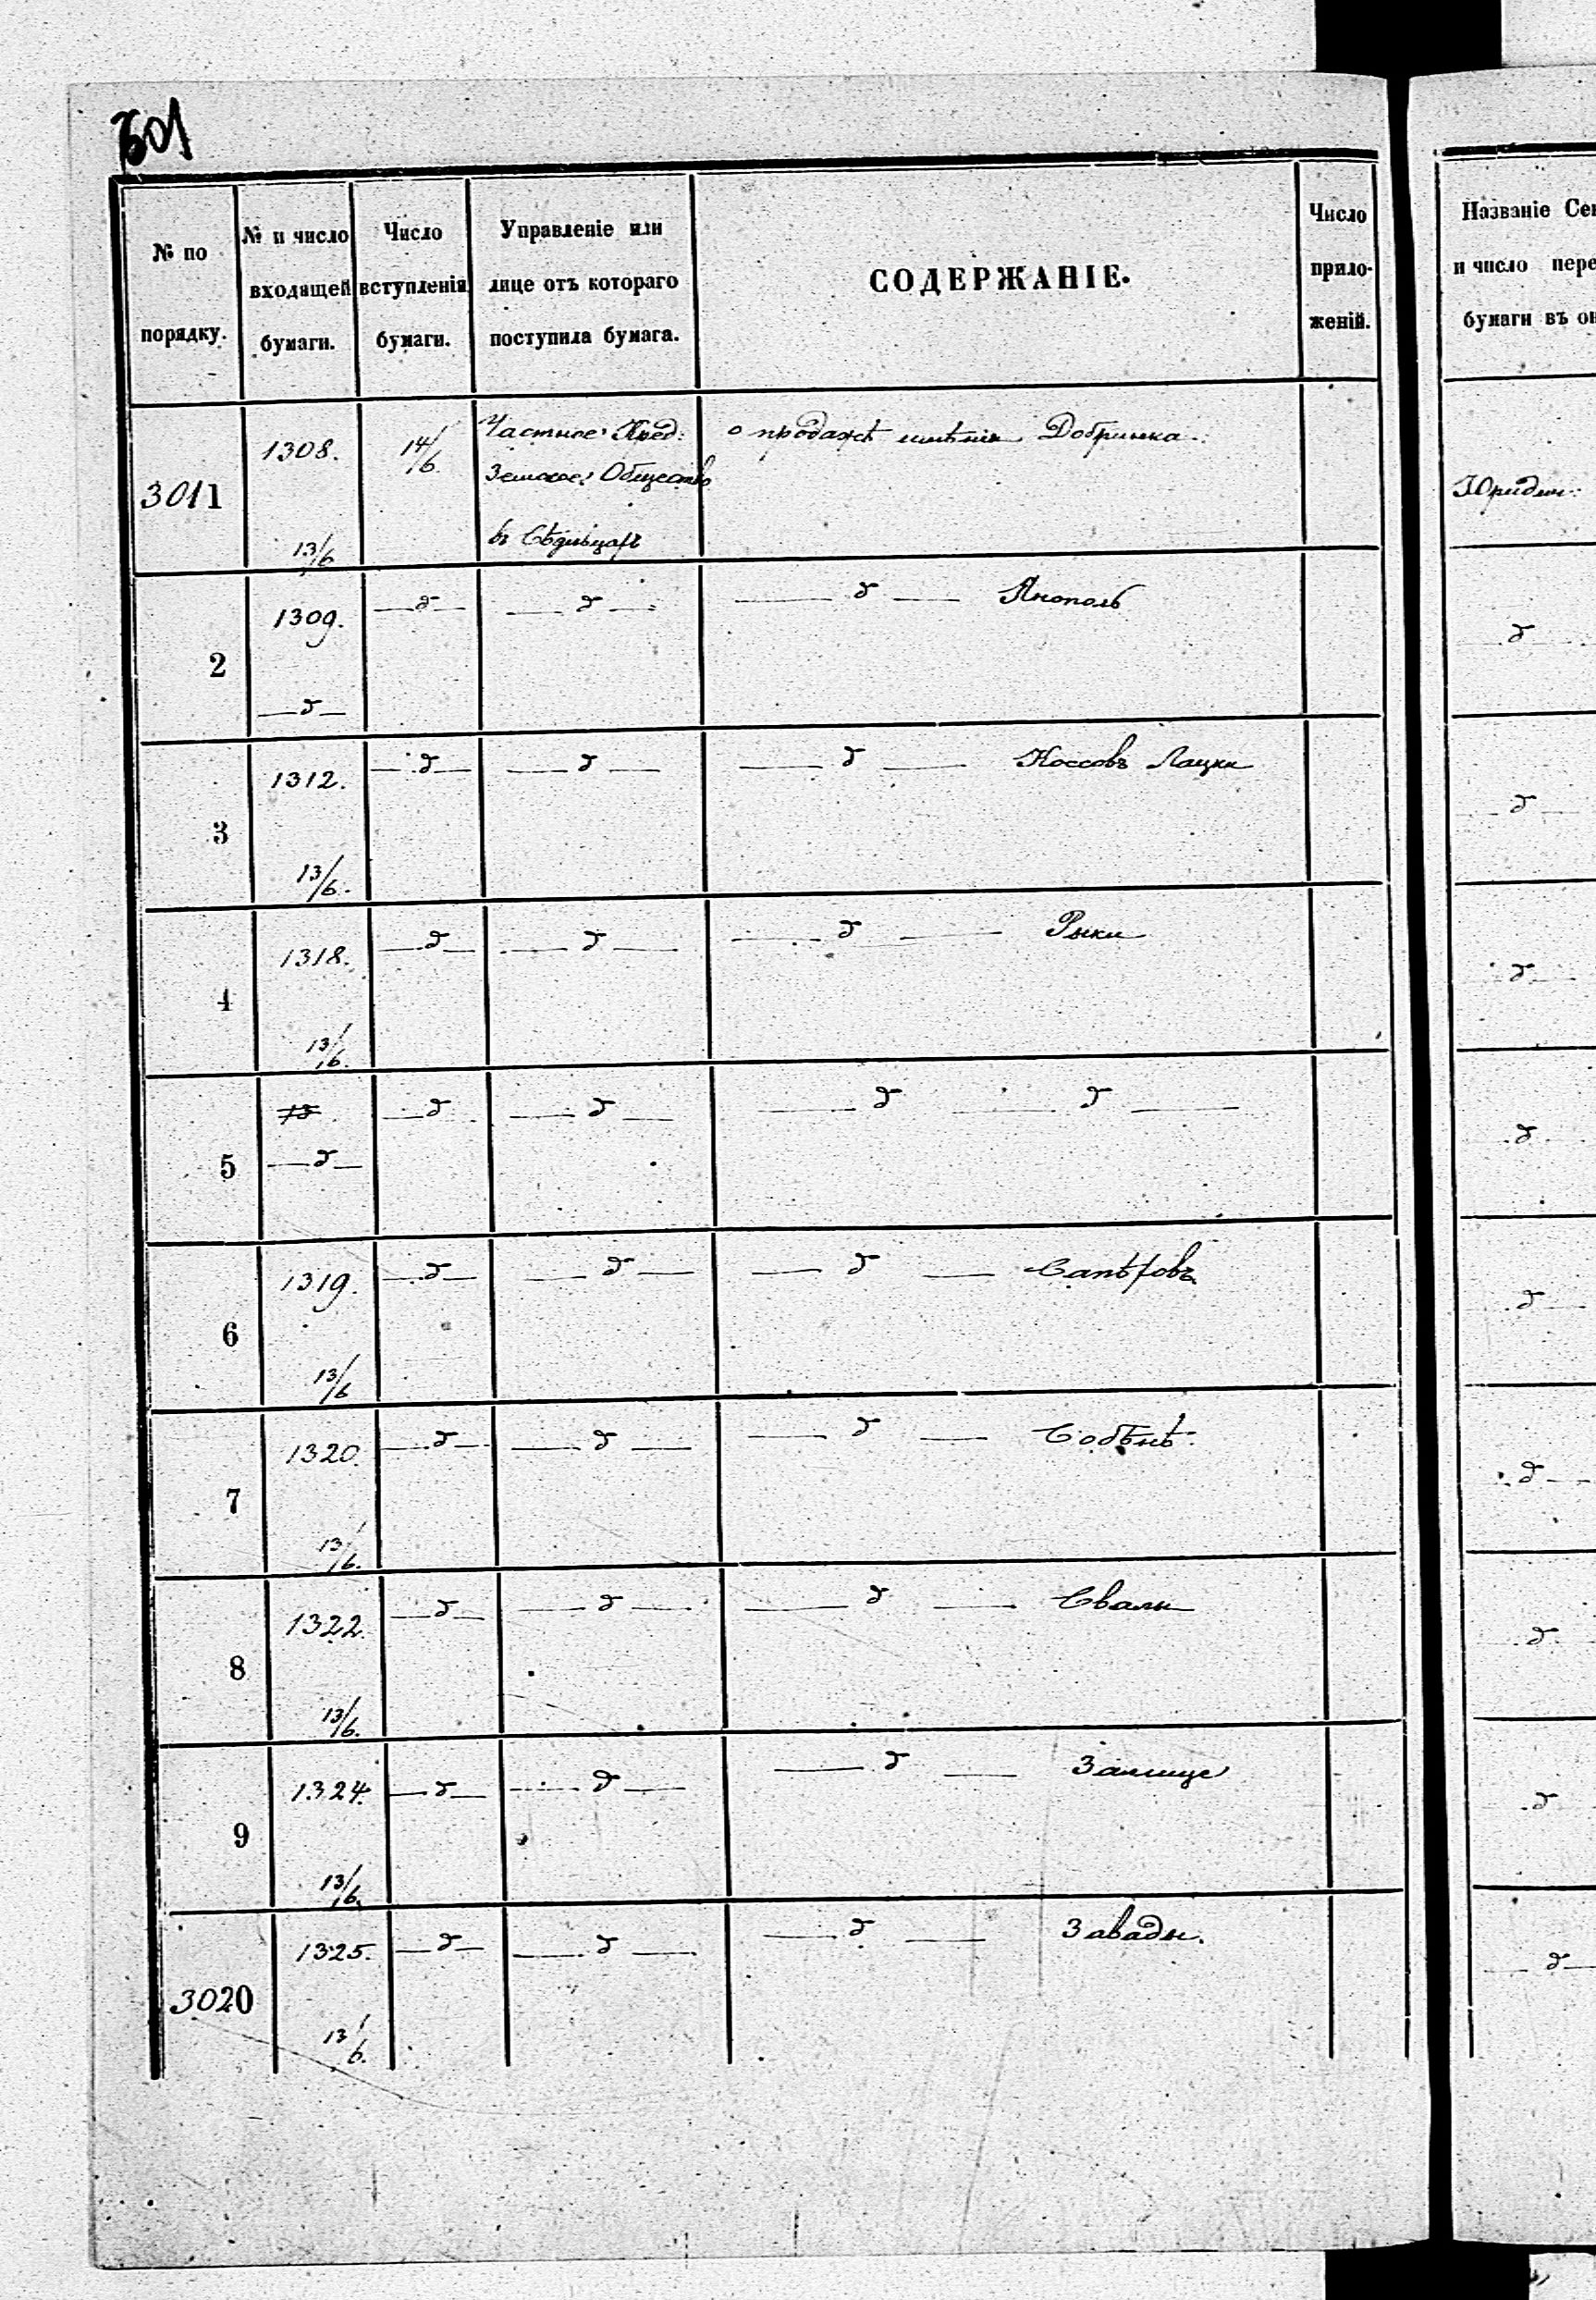 601
№ по порядку.
№ и число входящей бумаги.
Число вступленія бумаги.
Управленіе или лице отъ котораго поступила бумага.
СОДЕРЖАНІЕ.
Число прило- женій.
Названіе Сек
и число пере
бумаги въ он
3011 1308. 13/6 14/6 Частное Кред: о продажѣ имѣнія Добринка.
Земское Общество
въ Сѣдльцахъ
Юридич:
2 1309. —д— —д— —д— —д— Янополь д
3 1312. 13/6. —д— —д— —д— Коссовъ Лацки д
4 1318. 13/6. —д— —д— —д— Рыки д
5 —д— —д— —д— —д— —д— д
6 1319. 13/6 —д— —д— —д— д
7 1320. 13/6. —д— —д— —д— д
8 1322. 13/6. —д— —д— —д— д
9 1324. 13/6. —д— —д— —д— д
3020 1325. 13/6. —д— —д— —д— Завады. —д—